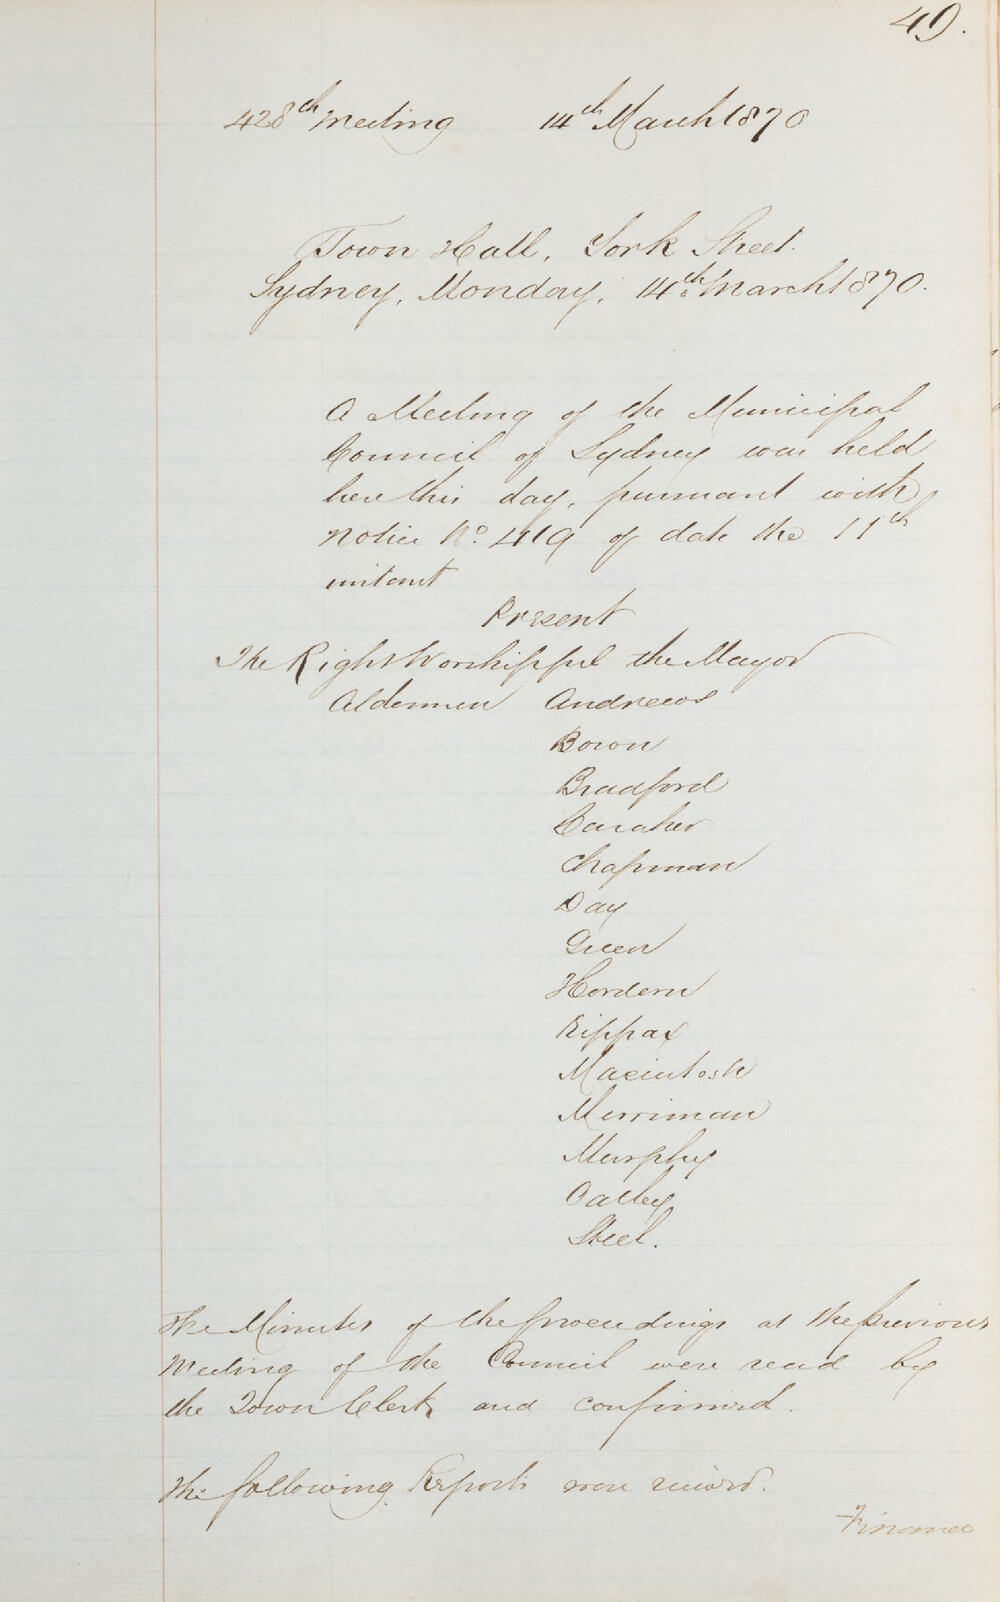 49.
428th Meeting 14th March 1870
Town Hall, York Street.
Sydney, Monday, 14th March 1870.
A Meeting of the Municipal
Council of Sydney was held
here this day, pursuant with
notice No. 419 of date the 11th
instant
Present
The Right Worshipful the Mayor
Aldermen Andrews
Bown
Bradford
Caraher
Chapman
Day
Green
Hordern
Kippax
Macintosh
Merriman
Murphy
Oatley
Steel.
The Minutes of the proceedings at the previous
Meeting of the Council were read by
the Town Clerk and confirmed.
The following Reports were receivd.
Finance